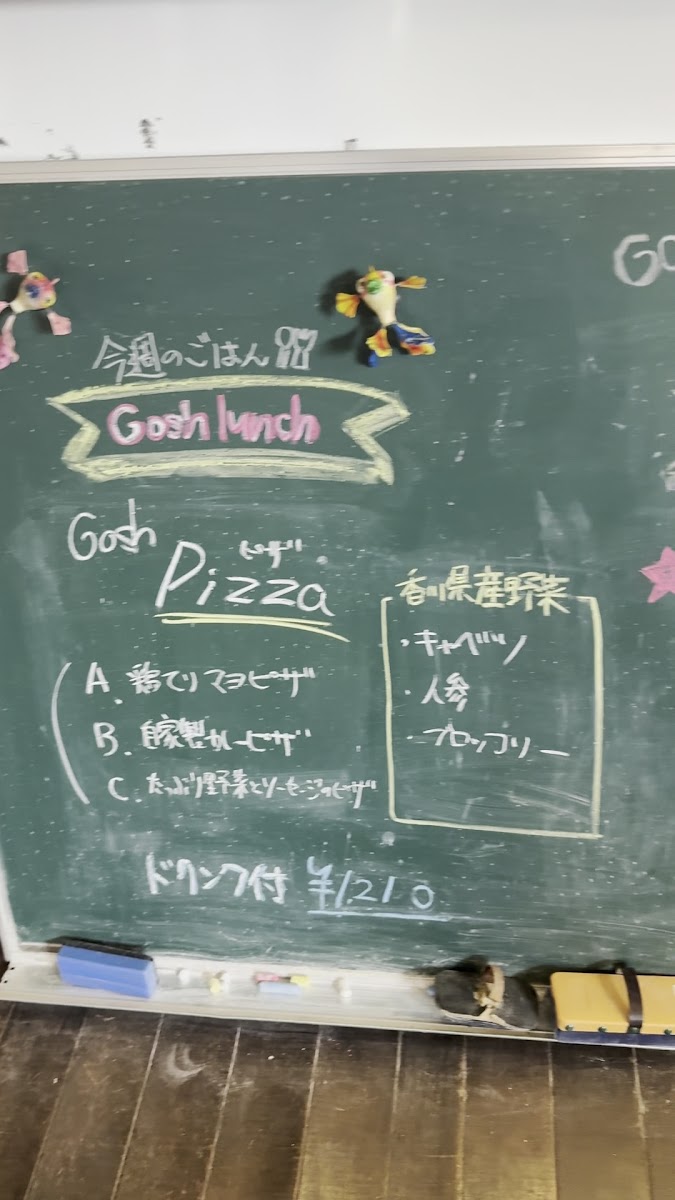 今週のごはん
Gosh lunch
Gosh
ピザ
Pizza
A. 鶏てりマヨピザ
B. 自家製カレーピザ
C. たっぷり野菜とソーセージのピザ
ドリンク付 ¥1,210
香川県産野菜
・キャベツ
・人参
・ブロッコリー
GO